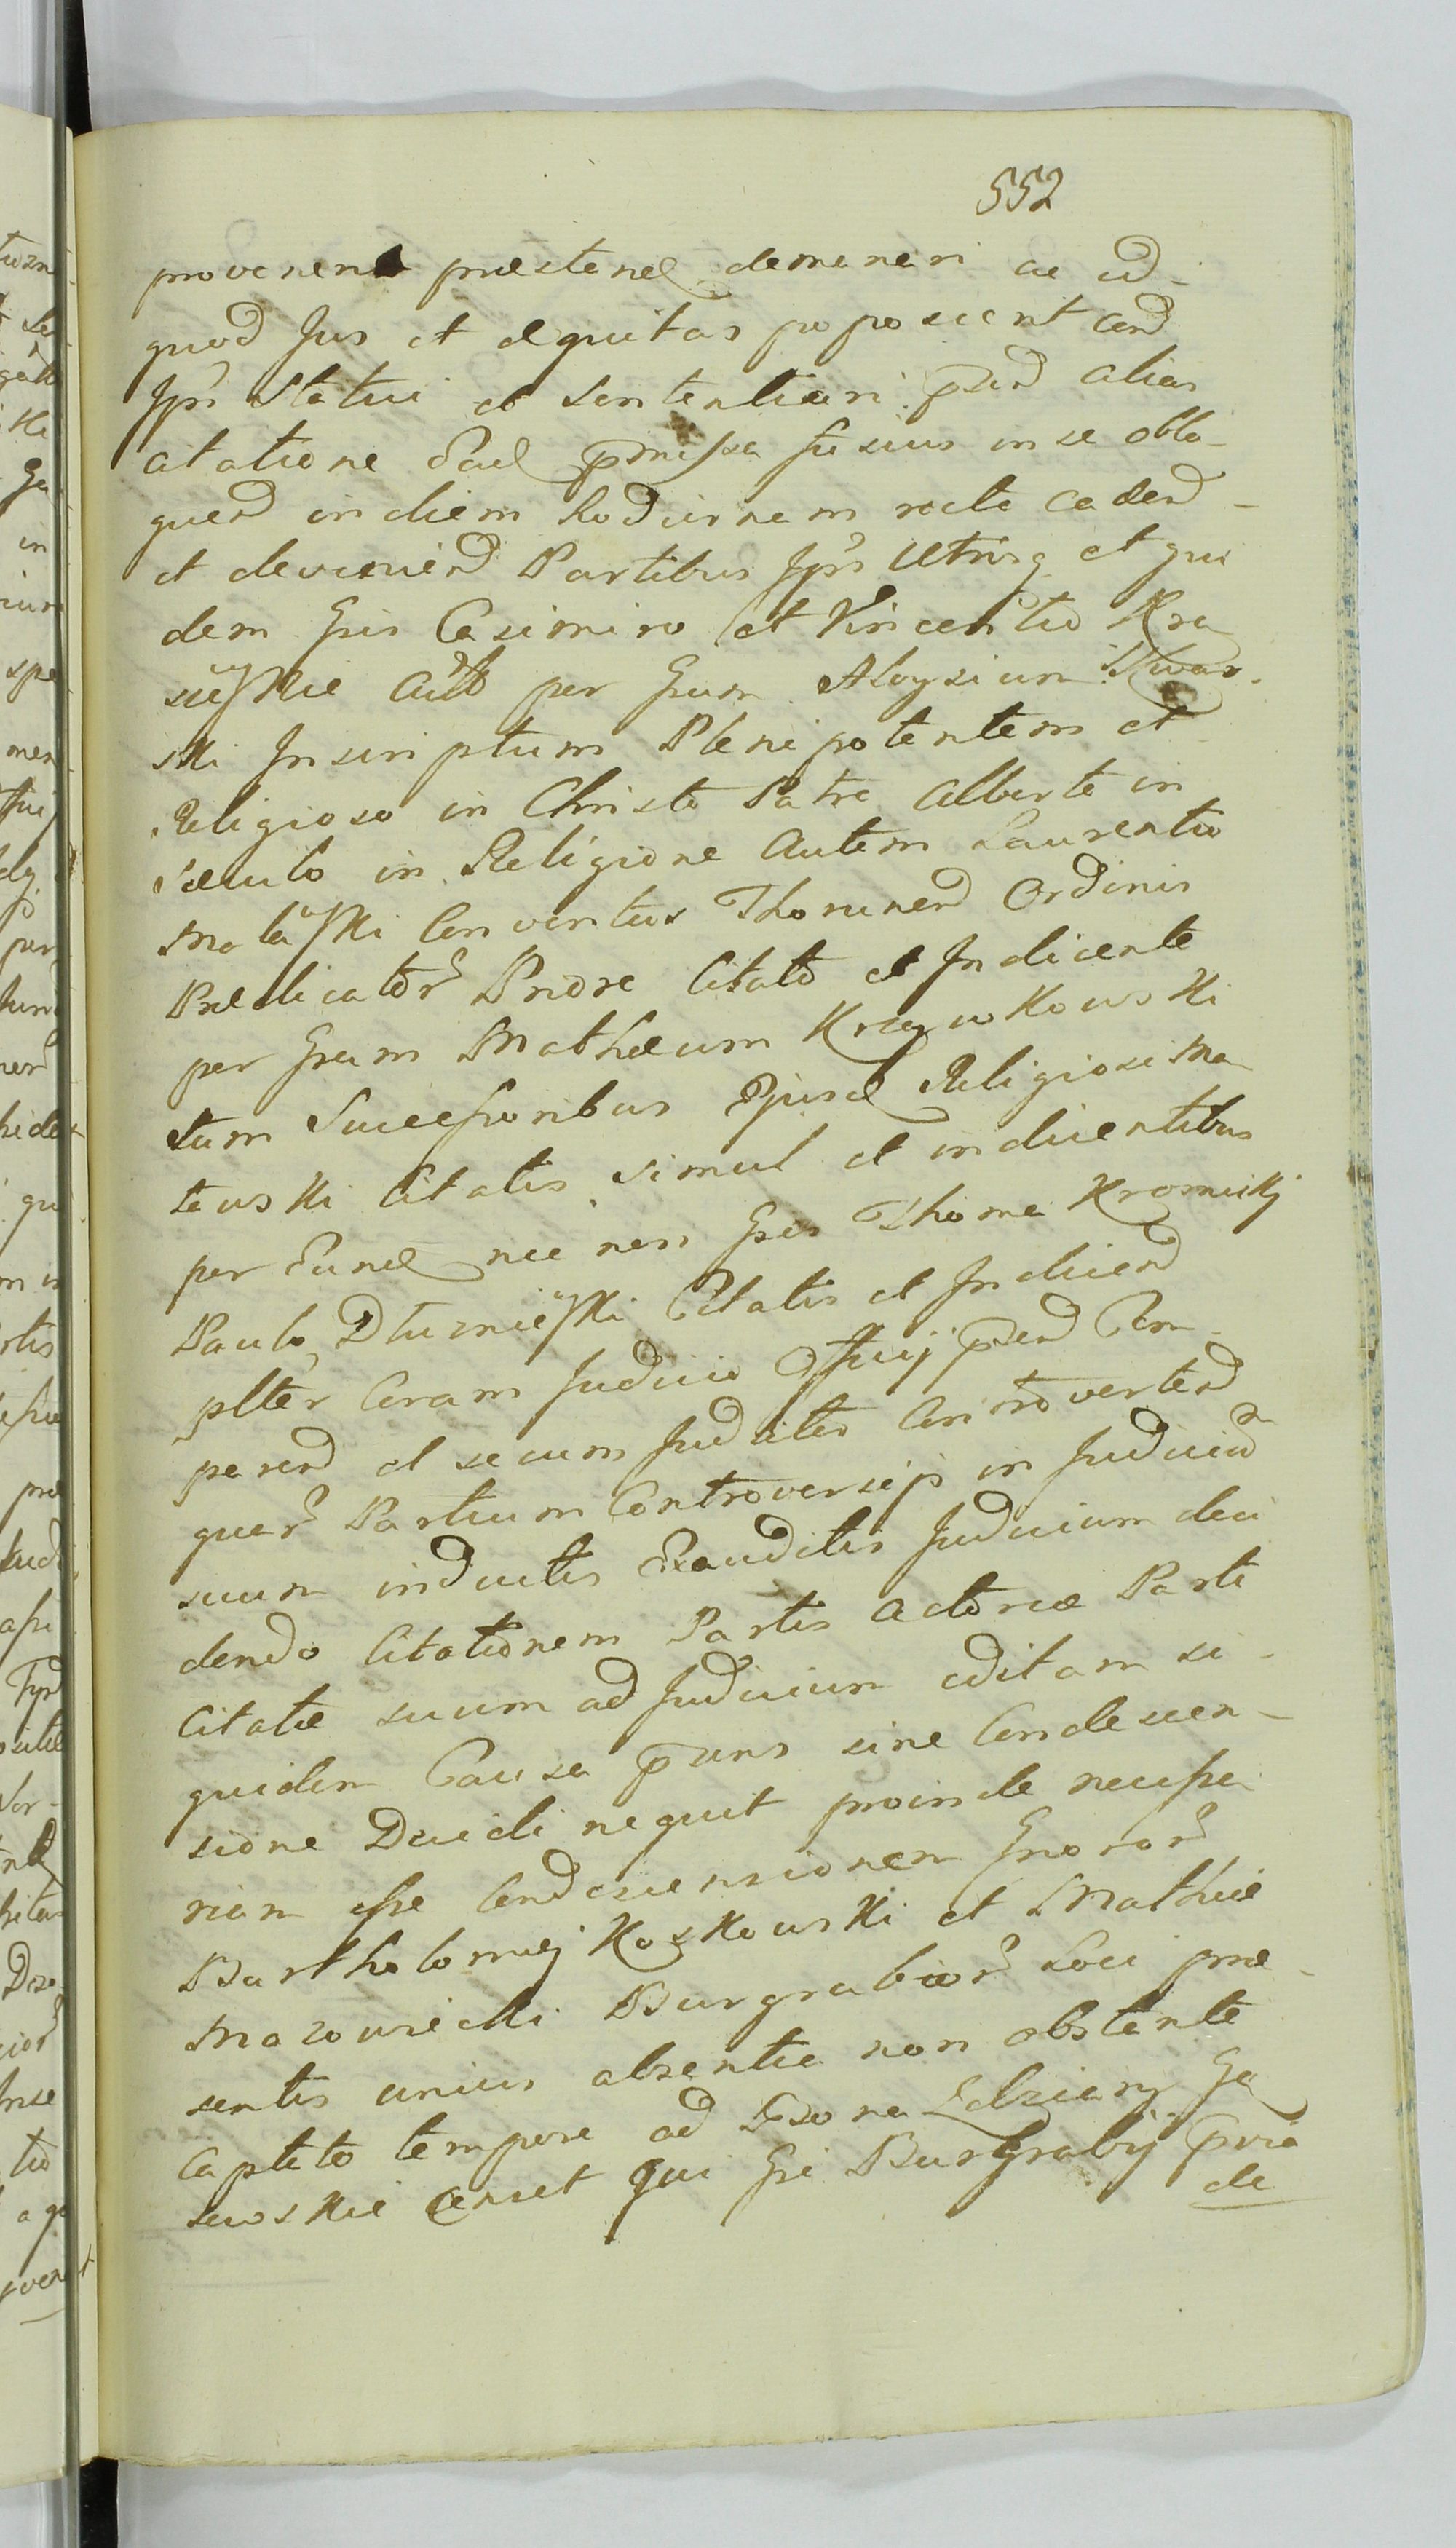 552
provenend præstand demereri ac id
quod Jus et æquitas poposcerit cend
Jpŝ Statui et Sententiari pŝnd alias
citatione Ead pmissa fusius in se obla-
quend in diem hodiernam recte cadend
et deveniend Partibus Jpŝ Utrisq et qui
dem Gsis Casimiro et Vincentio Kra
siĕskie Actb per Gsum Aloysium Skwar-
ski Inscriptum Plenipotentem et
Religioso in Christo Patre Alberto in
sæculo in Religione autem Laurentio
Matĕski Conventus Thorunend Ordinis
Prædicator Priore Citato et Indicente
per Gsum Mathæum Krzywkowski
tum Successoribus Ejusd Religiosi Ma
tewski Citatis simul et indicentibus
per Eund nec non Gsis Thoma Kromickj
Paulo Dłuzniĕski Citatis et Indicend
plter Coram Judicio Offuij pŝnd Com-
parend et secum Juditer Controvertend
quar Partium Controversijs in Judicio
suum inductis Exauditis Judicium deci
dendo Citationem Partis Actoreæ Parti
Citatæ suum ad Judicium editam si-
quidem Causa pŝns sine Condescen-
sione Decidi nequit proinde necessa
riam esse Condescensionem Gnoror
Bartholomæj Koskowski et Mathiæ
Mazowiecki Burgrabior Loci præ-
sentis unius absentia non obstante
Captato tempore ad bona Ldziany Ga
sewskie censet Qui Gsi Burgrabij pria
de